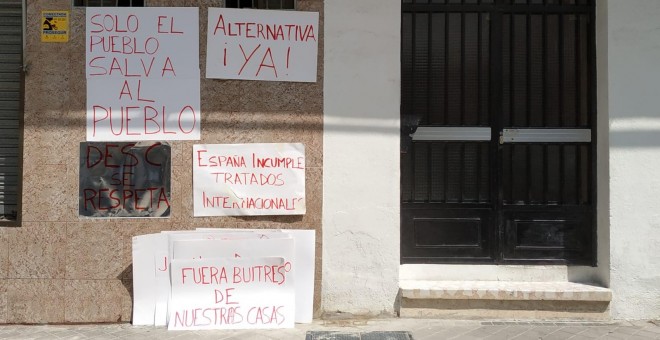 SOLO EL
PUEBLO
SALVA
AL
PUEBLO
ALTERNATIVA
¡YA!
DESC
SE
RESPETA
ESPAÑA INCUMPLE
TRATADOS
INTERNACIONALES
FUERA BUITRES
DE
NUESTRAS CASAS